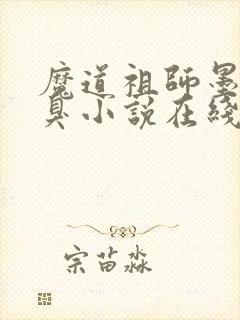 魔道祖師墨
臭小説在綫
宗苗淼